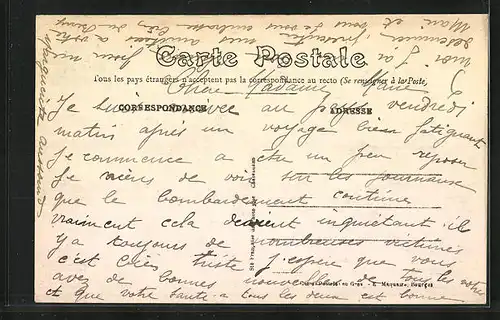 Carte Postale
Tous les pays étrangers n'acceptent pas la correspondance au recto (Se renseigner à la Poste)
CORRESPONDANCE
ADRESSE
Chère Madame Marie
Je suis arrivée au pays vendredi
matin après un voyage bien fatiguant
Je commence a etre un peu reposer
Je viens de voir sur les journaux
que le bombardement continue
vraiment cela devient inquiétant il
y a toujours de nombreuses victimes
c'est bien triste j'espère que vous
avez de bonnes nouvelles de tous les votres
et que votre santé a tous les deux est bonne
moi j'ai
a votre
Mari et
vous embrasse bien